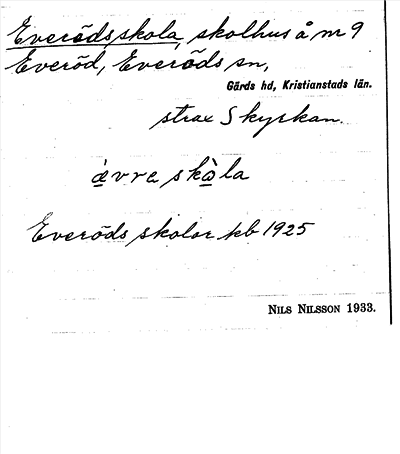 Everödsskola, skolhus å m 9
Everöd, Everöds sn,
Gärds hd, Kristianstads län.
strax S kyrkan.
ævra skòla
Everöds skolor kb 1925
NILS NILSSON 1933.